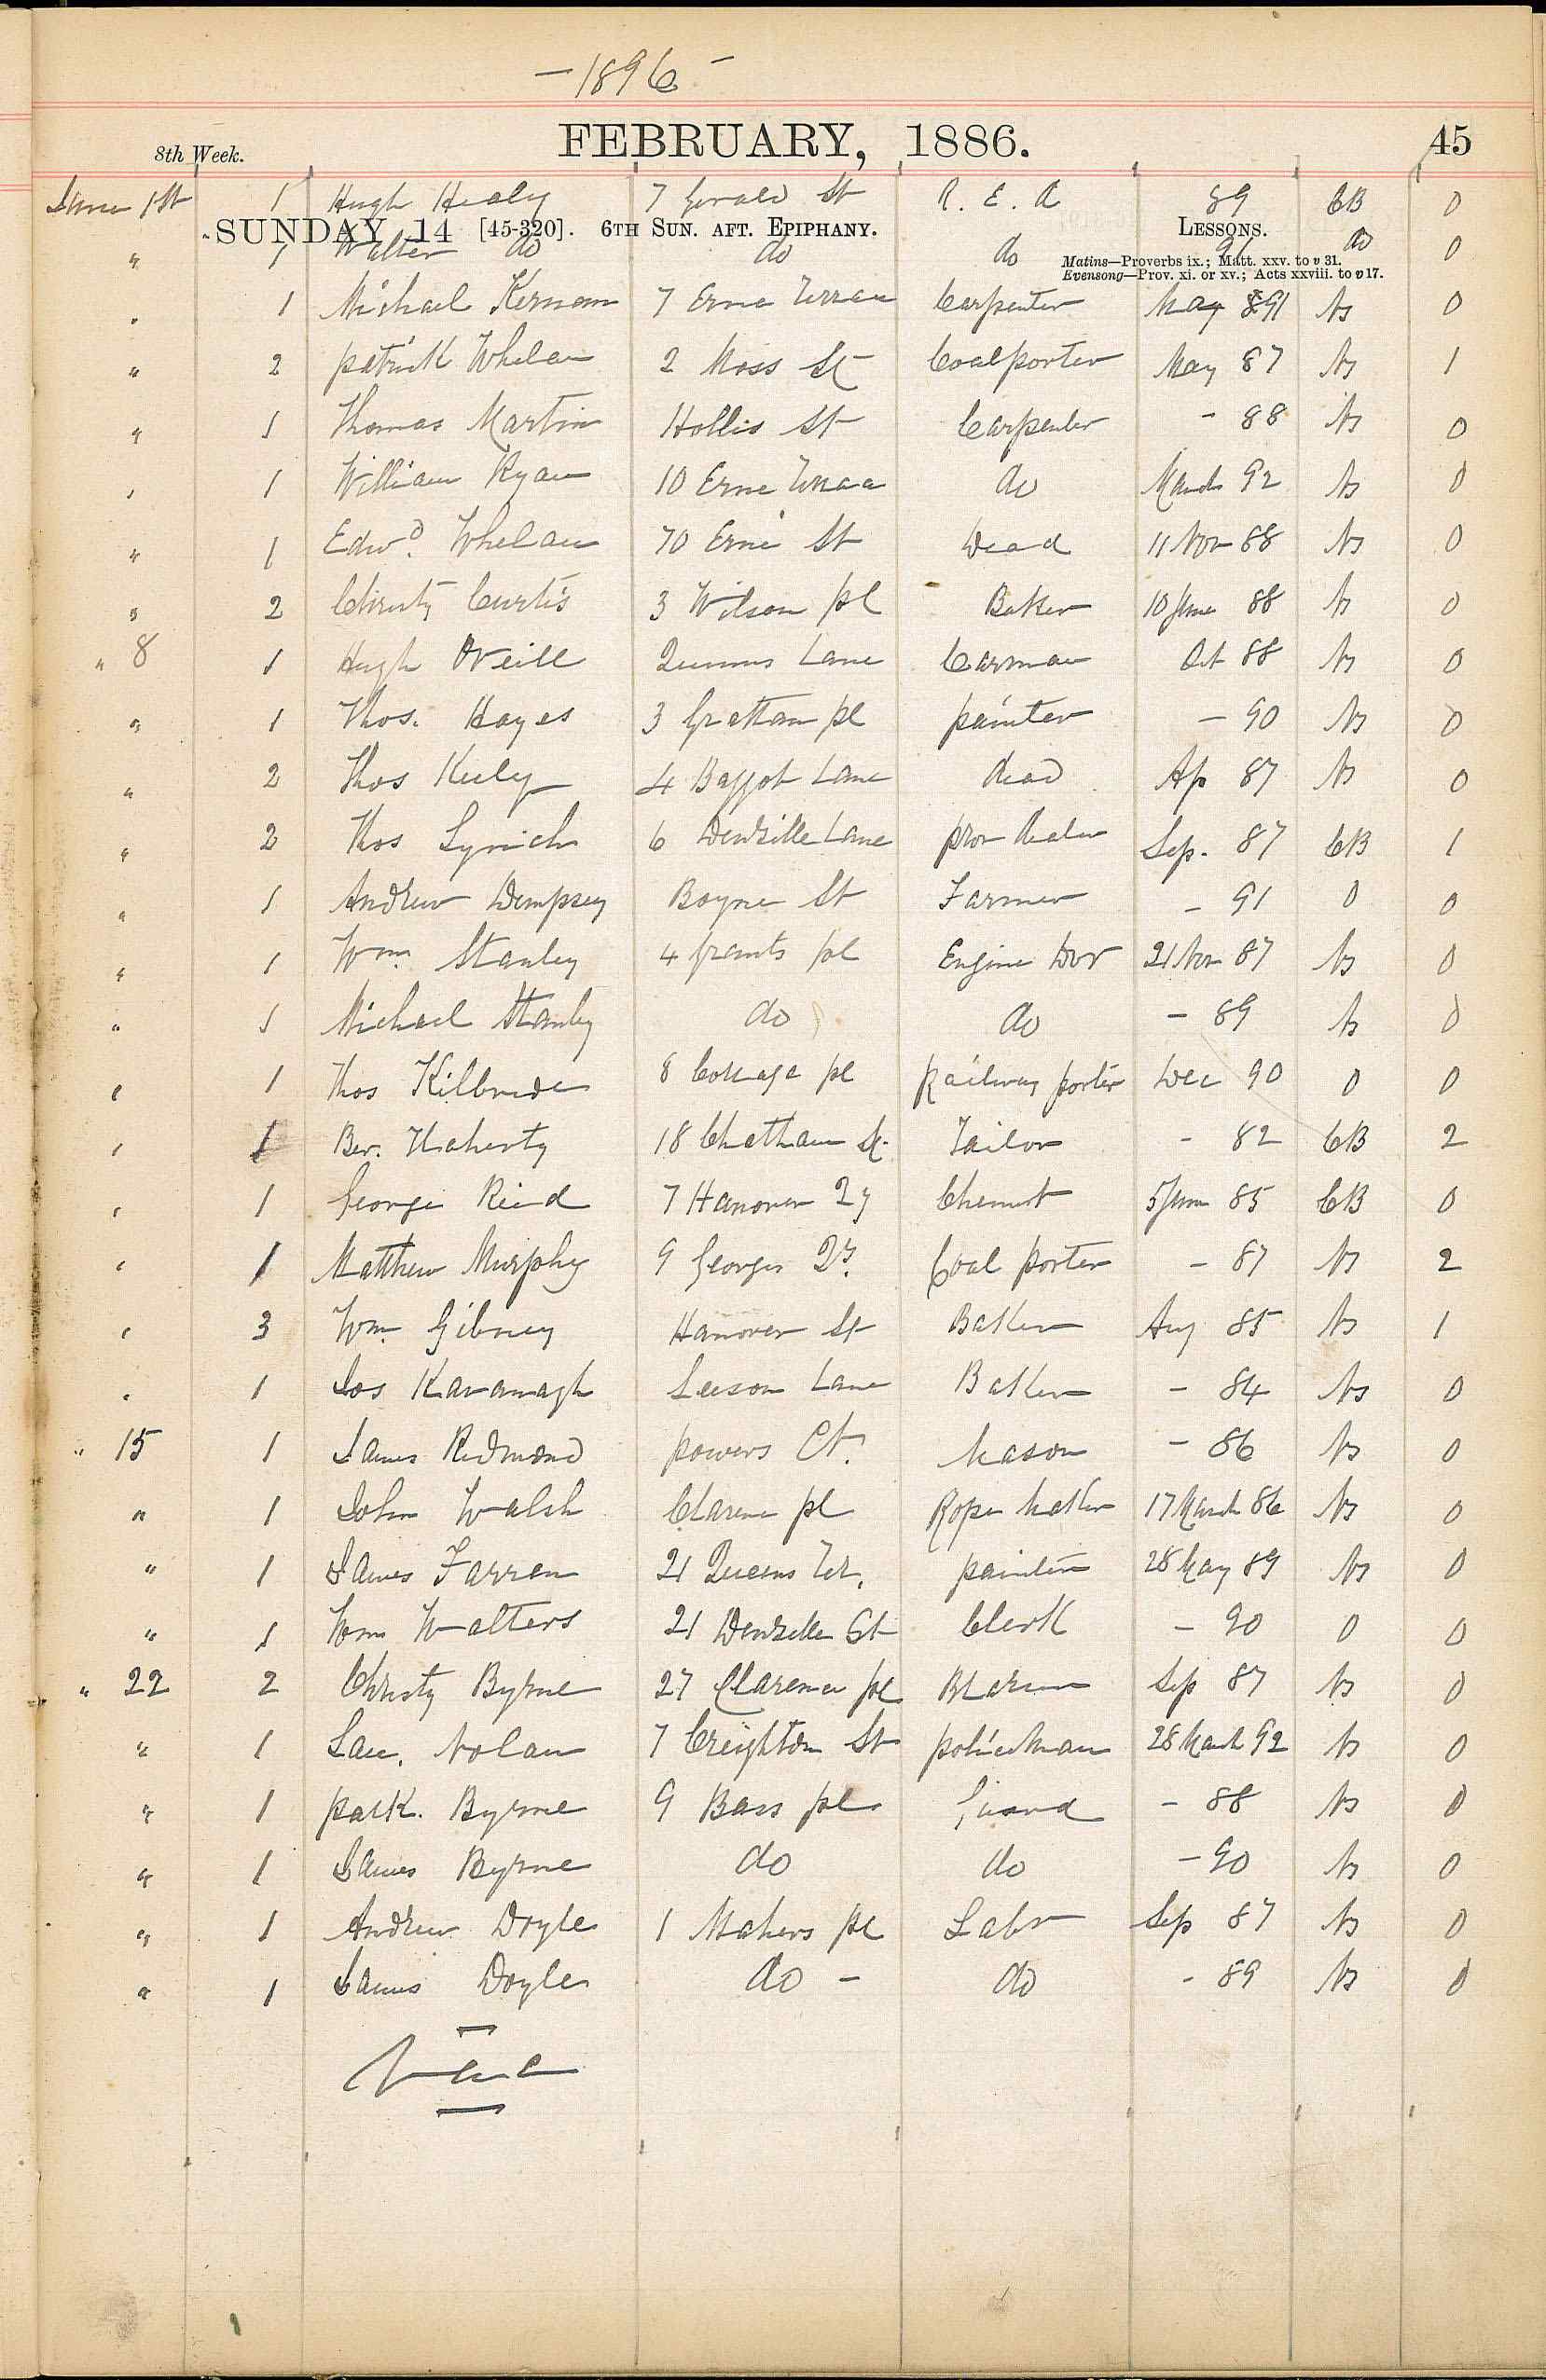 - 1896 -
8th Week. FEBRUARY, 1886. 45
June 1st 1 Hugh Healy 7 Gerald St R. E. A 89 CB 0
SUNDAY 14 [45-320]. 6TH SUN. AFT. EPIPHANY. LESSONS.
" 1 Walter do do do 91 do 0
Matins—Proverbs ix.; Matt. xxv. to v 31.
Evensong—Prov. xi. or xv.; Acts xxviii. to v 17.
" 1 Michael Kernan 7 Erne Terrace Carpenter May 91 Ns 0
" 2 patrick Whelan 2 Moss St Coalporter May 87 Ns 1
" 1 Thomas Martin Hollis St Carpenter - 88 Ns 0
" 1 William Ryan 10 Erne Terrace do March 92 Ns 0
" 1 Edwd. Whelan 70 Erne St Dead 11 Nov 88 Ns 0
" 2 Christy Curtis 3 Wilson pl Baker 10 June 88 Ns 0
" 8 1 Hugh ONeill Queens Lane Carman Oct 88 Ns 0
" 1 Thos. Hayes 3 Grattan pl painter - 90 Ns 0
" 2 Thos Keely 4 Baggot Lane dead Ap 87 Ns 0
" 2 Thos Lynch 6 Denzille Lane prov dealer Sep. 87 CB 1
" 1 Andrew Dempsey Boyne St Farmer - 91 0 0
" 1 Wm. Stanley 4 Grants pl Engine Dvr 21 Nov 87 Ns 0
" 1 Michael Stanley do do - 89 Ns 0
" 1 Thos Kilbride 8 Cottage pl Railway porter Dec 90 0 0
" 1 Ber. Flaherty 18 Chatham St. Tailor - 82 CB 2
" 1 George Reid 7 Hanover Qy Chemist 5 June 85 CB 0
" 1 Matthew Murphy 9 Georges Qy. Coal porter - 87 Ns 2
" 3 Wm. Gibney Hanover St Baker Aug 85 Ns 1
" 1 Jos Kavanagh Leeson Lane Baker - 84 Ns 0
" 15 1 James Redmond powers Ct. Mason - 86 Ns 0
" 1 John Walsh Clarence pl Rope Maker 17 March 86 Ns 0
" 1 James Farren 21 Queens Ter. painter 28 May 89 Ns 0
" 1 Wm Walters 21 Denzille St Clerk - 90 0 0
" 22 2 Christy Byrne 27 Clarence pl Sep 87 Ns 0
" 1 Lau. Nolan 7 Creighton St policeman 28 March 92 Ns 0
" 1 patk. Byrne 9 Bass pl Guard - 88 Ns 0
" 1 James Byrne do do - 90 Ns 0
" 1 Andrew Doyle 1 Mahers pl Labr Sep 87 Ns 0
" 1 James Doyle do - do - 89 Ns 0